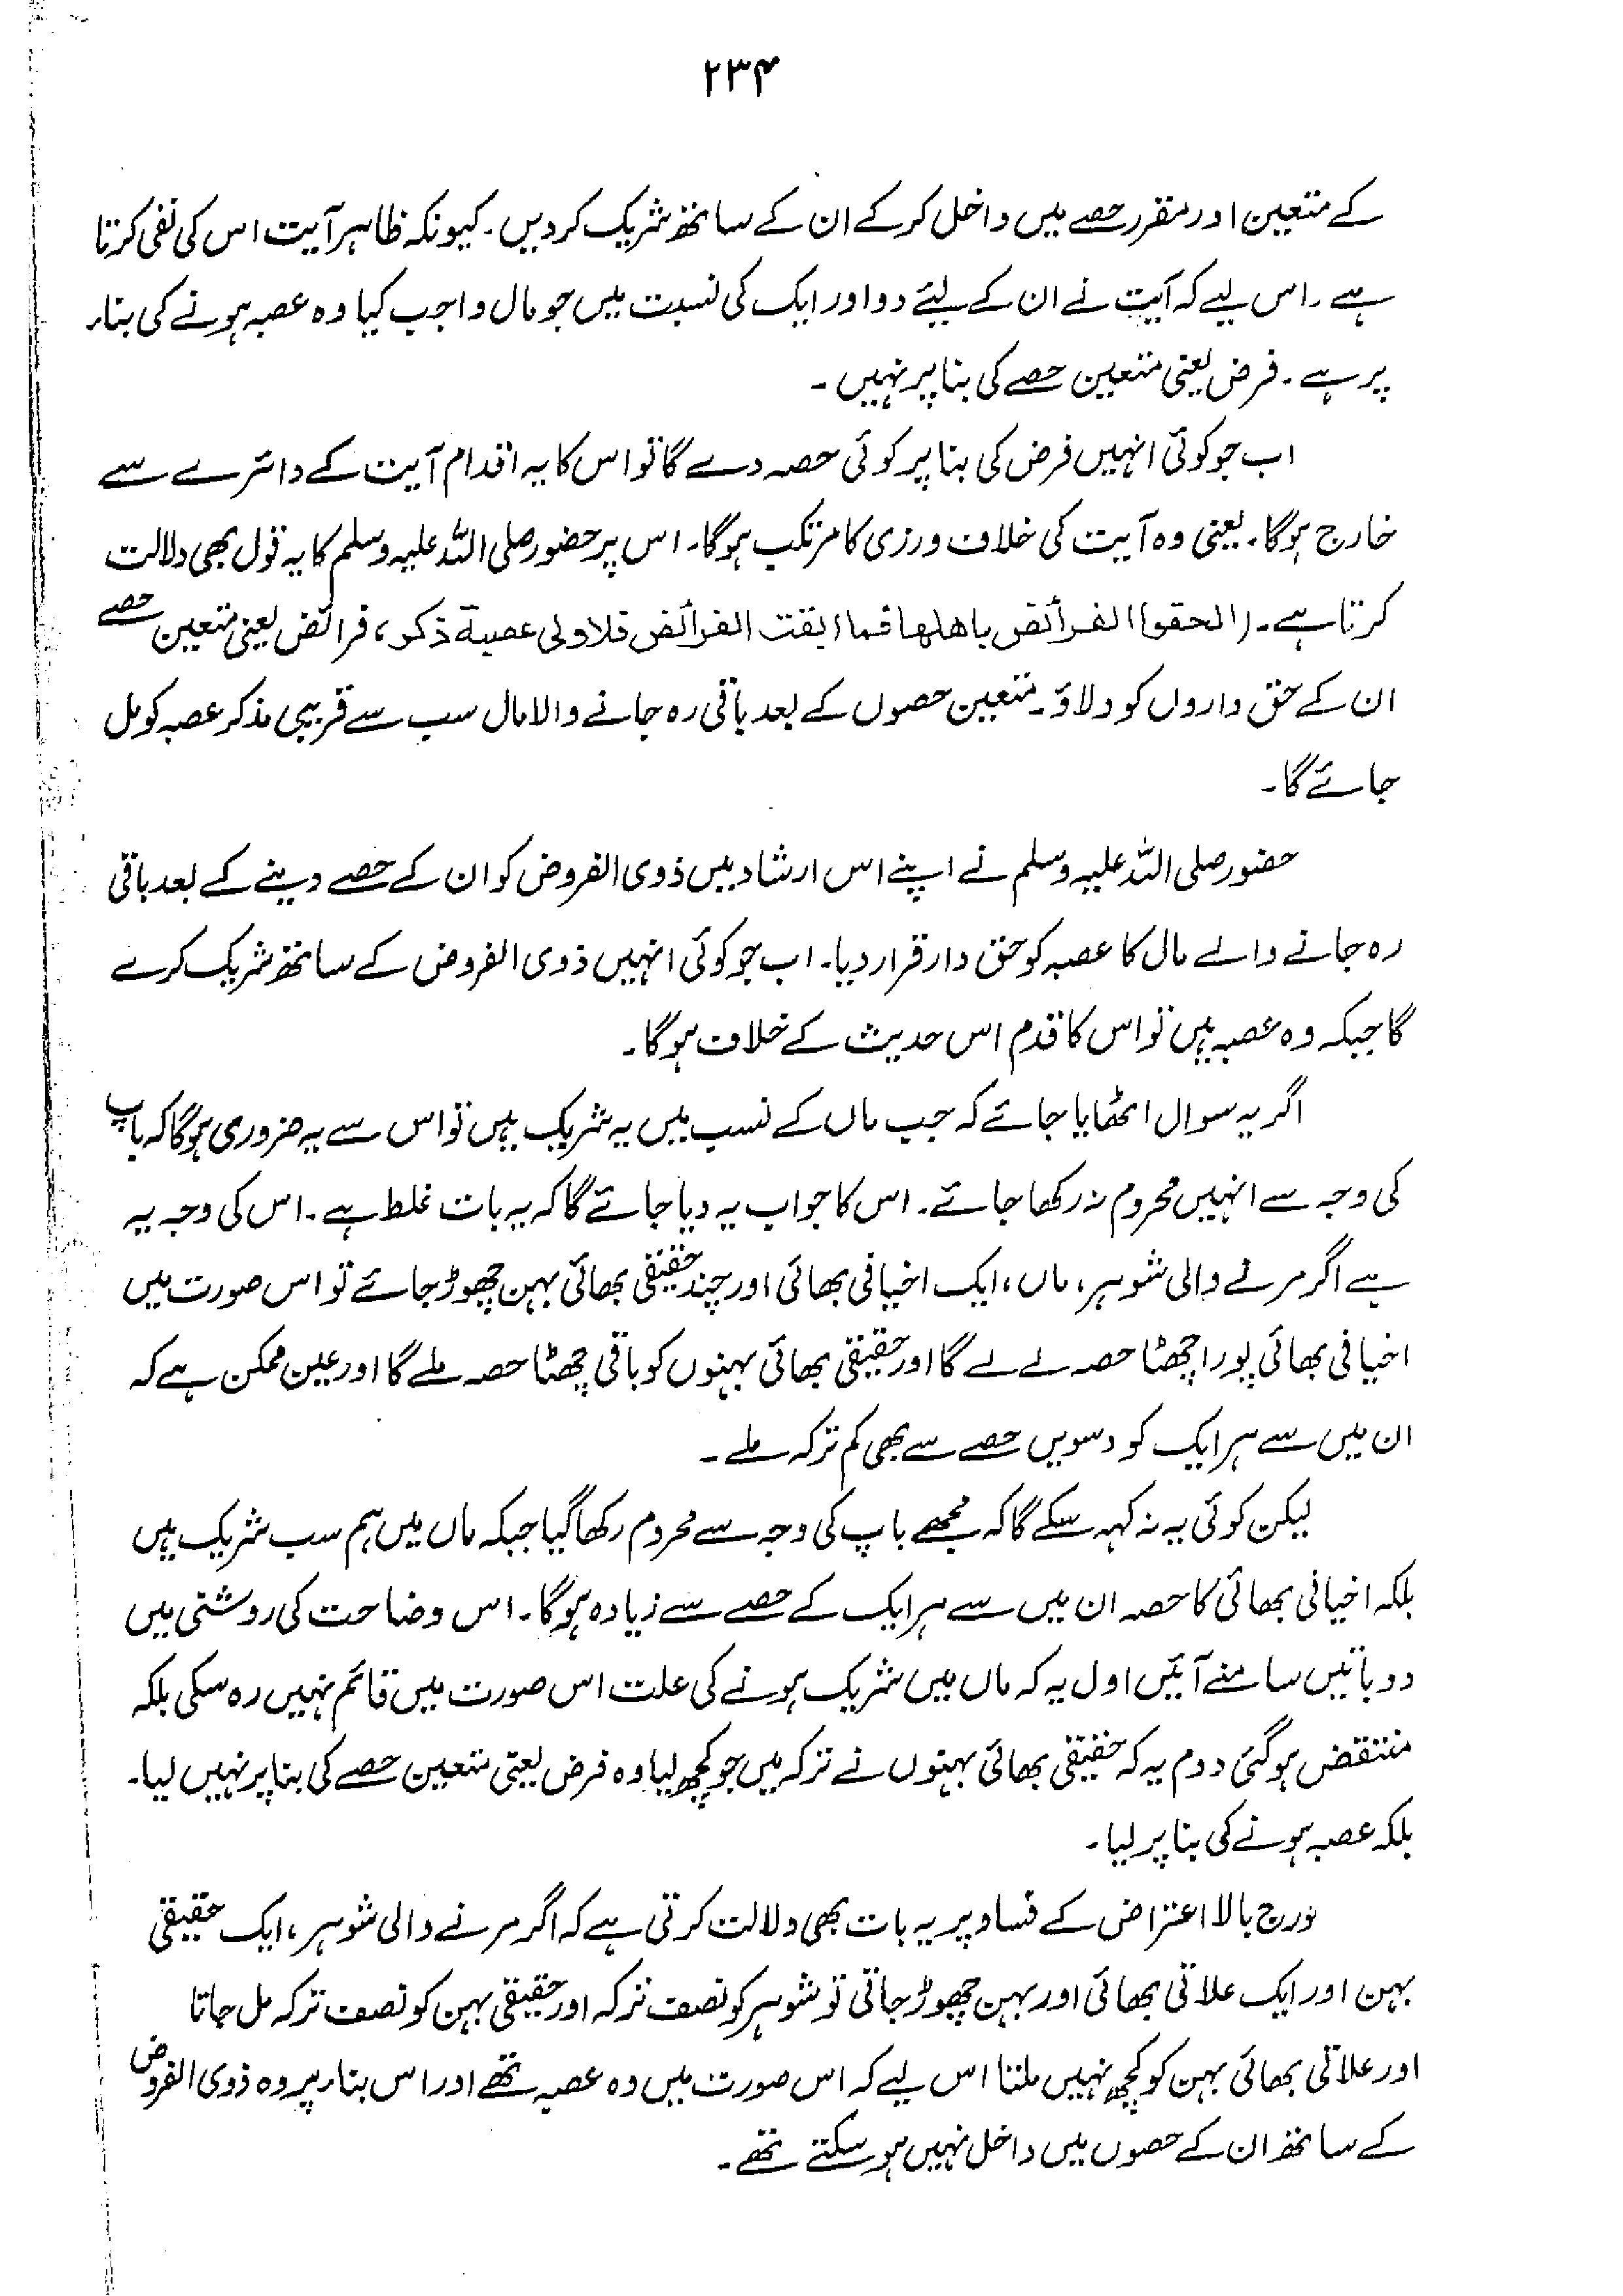 ۲۳۴
کے متعین اور مقرر حصے میں داخل کر کے ان کے ساتھ شریک کر دیں۔ کیونکہ ظاہر آیت اس کی نفی کرتا
ہے۔ اس لیے کہ آیت نے ان کے لیئے دو اور ایک کی نسبت میں جو مال واجب کیا وہ عصبہ ہونے کی بناء
پر ہے۔ فرض یعنی متعین حصے کی بنا پر نہیں۔
اب جو کوئی انہیں فرض کی بنا پر کوئی حصہ دے گا تو اس کا یہ اقدام آیت کے دائرے سے
خارج ہوگا۔ یعنی وہ آیت کی خلاف ورزی کا مرتکب ہوگا۔ اس پر حضور صلی اللہ علیہ وسلم کا یہ قول بھی دلالت
کرتا ہے۔ (الحقوا الفرائض باھلھا فما ابقت الفرائض فلاولی عصبۃ ذکر، فرائض یعنی متعین حصے
ان کے حق داروں کو دلاؤ۔ متعین حصوں کے بعد باقی رہ جانے والا مال سب سے قریبی مذکر عصبہ کو مل
جائے گا۔
حضور صلی اللہ علیہ وسلم نے اپنے اس ارشاد میں ذوی الفروض کو ان کے حصے دینے کے بعد باقی
رہ جانے والے مال کا عصبہ کو حق دار قرار دیا۔ اب جو کوئی انہیں ذوی الفروض کے ساتھ شریک کرے
گا جبکہ وہ عصبہ ہیں تو اس کا قدم اس حدیث کے خلاف ہوگا۔
اگر یہ سوال اٹھایا جائے کہ جب ماں کے نسب میں یہ شریک ہیں تو اس سے یہ ضروری ہوگا کہ باپ
کی وجہ سے انہیں محروم نہ رکھا جائے۔ اس کا جواب یہ دیا جائے گا کہ یہ بات غلط ہے۔ اس کی وجہ یہ
ہے اگر مرنے والی شوہر، ماں، ایک اخیافی بھائی اور چند حقیقی بھائی بہن چھوڑ جائے تو اس صورت میں
اخیافی بھائی پورا چھٹا حصہ لے لے گا اور حقیقی بھائی بہنوں کو باقی چھٹا حصہ ملے گا اور عین ممکن ہے کہ
ان میں سے ہر ایک کو دسویں حصے سے بھی کم ترکہ ملے۔
لیکن کوئی یہ نہ کہہ سکے گا کہ مجھے باپ کی وجہ سے محروم رکھا گیا جبکہ ماں میں ہم سب شریک ہیں
بلکہ اخیافی بھائی کا حصہ ان میں سے ہر ایک کے حصے سے زیادہ ہوگا۔ اس وضاحت کی روشنی میں
دو باتیں سامنے آئیں اول یہ کہ ماں میں شریک ہونے کی علت اس صورت میں قائم نہیں رہ سکی بلکہ
منتقض ہو گئی دوم یہ کہ حقیقی بھائی بہنوں نے ترکہ میں جو کچھ لیا وہ فرض یعنی متعین حصے کی بنا پر نہیں لیا۔
بلکہ عصبہ ہونے کی بنا پر لیا۔
درج بالا اعتراض کے فساد پر یہ بات بھی دلالت کرتی ہے کہ اگر مرنے والی شوہر، ایک حقیقی
بہن اور ایک علاتی بھائی اور بہن چھوڑ جاتی تو شوہر کو نصف ترکہ اور حقیقی بہن کو نصف ترکہ مل جاتا
اور علاتی بھائی بہن کو کچھ نہیں ملتا اس لیے کہ اس صورت میں وہ عصبہ تھے اور اس بناء پر وہ ذوی الفروض
کے ساتھ ان کے حصوں میں داخل نہیں ہو سکتے تھے۔